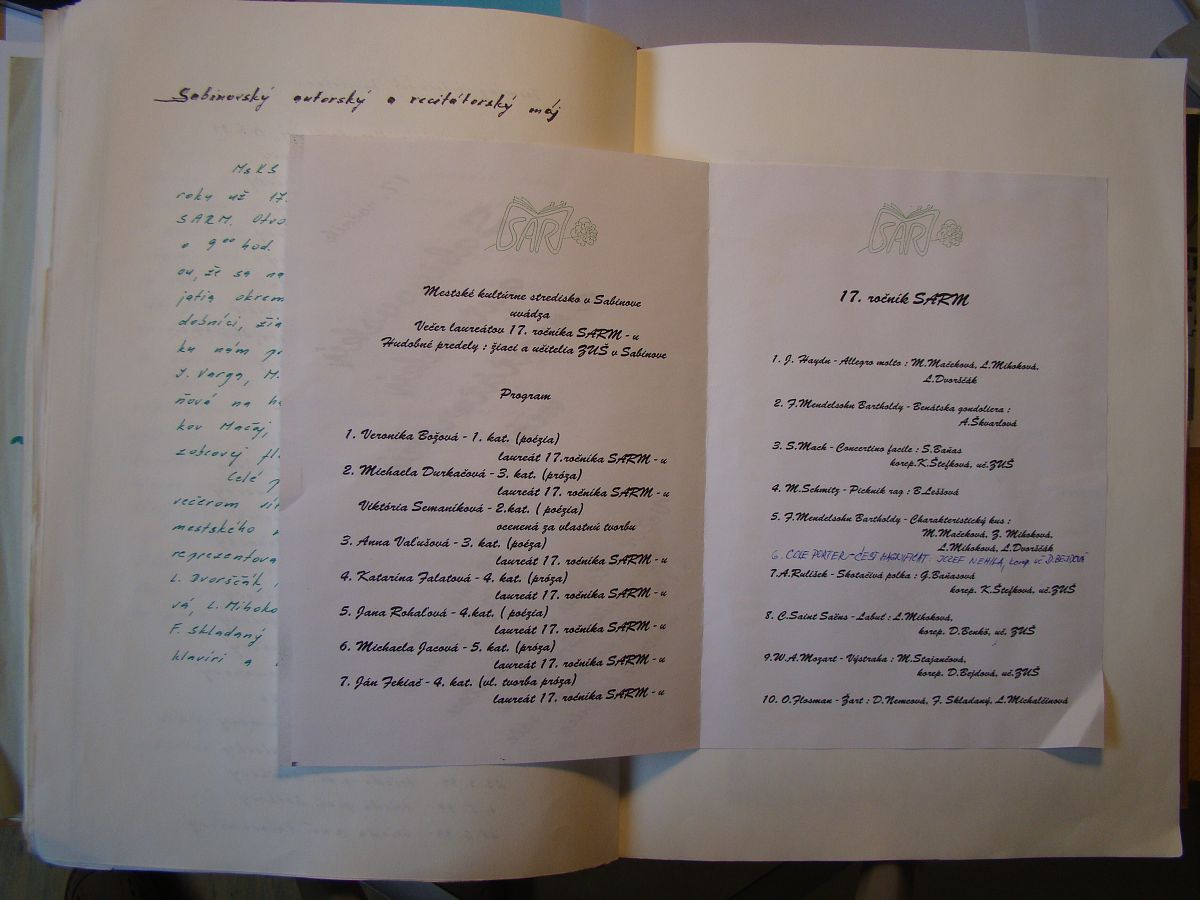 Sabinovský autorský a recitátorský máj
MsKS
roku už 17.
SARM. Otvo
o 9⁰⁰ hod.
ou, že sa na
jatia okrem
dobníci, žia
ku nám p
J. Varga, M.
ňová na h
kov Mačaj,
zobcovej fl
Celé p
večerom ví
mestského
reprezentova
L. Dvorščák,
vá, L. Mihoko
F. Skladaný
klavíri a
SARM
Mestské kultúrne stredisko v Sabinove
uvádza
Večer laureátov 17. ročníka SARM - u
Hudobné predely : žiaci a učitelia ZUŠ v Sabinove
Program
1. Veronika Božová - 1. kat. (poézia)
laureát 17.ročníka SARM - u
2. Michaela Durkačová - 3. kat. (próza)
laureát 17. ročníka SARM - u
Viktória Semaníková - 2.kat. ( poézia)
ocenená za vlastnú tvorbu
3. Anna Valušová - 3. kat. (poéza)
laureát 17. ročníka SARM - u
4. Katarína Falatová - 4. kat. (próza)
laureát 17. ročníka SARM - u
5. Jana Rohaľová - 4.kat. ( poézia)
laureát 17. ročníka SARM - u
6. Michaela Jacová - 5. kat. (próza)
laureát 17. ročníka SARM - u
7. Ján Fekiač - 4. kat. (vl. tvorba próza)
laureát 17. ročníka SARM - u
SARM
17. ročník SARM
1. J. Haydn - Allegro molto : M.Mačeková, L.Mihoková,
L.Dvorščák
2. F.Mendelsohn Bartholdy - Benátska gondoliera :
A.Škvarlová
3. S.Mach - Concertino facile : S.Baňas
korep.K.Štefková, uč.ZUŠ
4. M.Schmitz - Picknik rag : B.Leššová
5. F.Mendelsohn Bartholdy - Charakteristický kus :
M.Mačeková, Z. Mihoková,
L.Mihoková, L.Dvorščák
6. COLE PORTER - ČEST MAGNIFICAT: JOZEF NEMIKA, korep. uč. D.BEJDOVÁ
7.A.Rulíšek - Skotačivá polka : G.Baňasová
korep. K.Štefková, uč.ZUŠ
8. C.Saint Saëns - Labuť : L.Mihoková,
korep. D.Benkö, uč. ZUŠ
9.W.A.Mozart - Výstraha : M.Stajančová,
korep. D.Bejdová, uč.ZUŠ
10. O.Flosman - Žart : D.Nemcová, F. Skladaný, L.Michalčinová